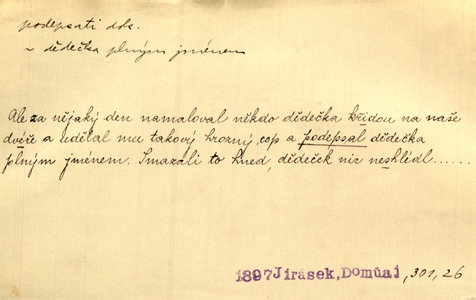 podepsati dok.
~ dědečka plným jménem
Ale za nějaký den namaloval někdo dědečka křídou na naše
dvéře a udělal mu takový hrozný cop a podepsal dědečka
plným jménem. Smazali to hned, dědeček nic neshlédl......
1897 Jirásek, Domů aj, 301, 26